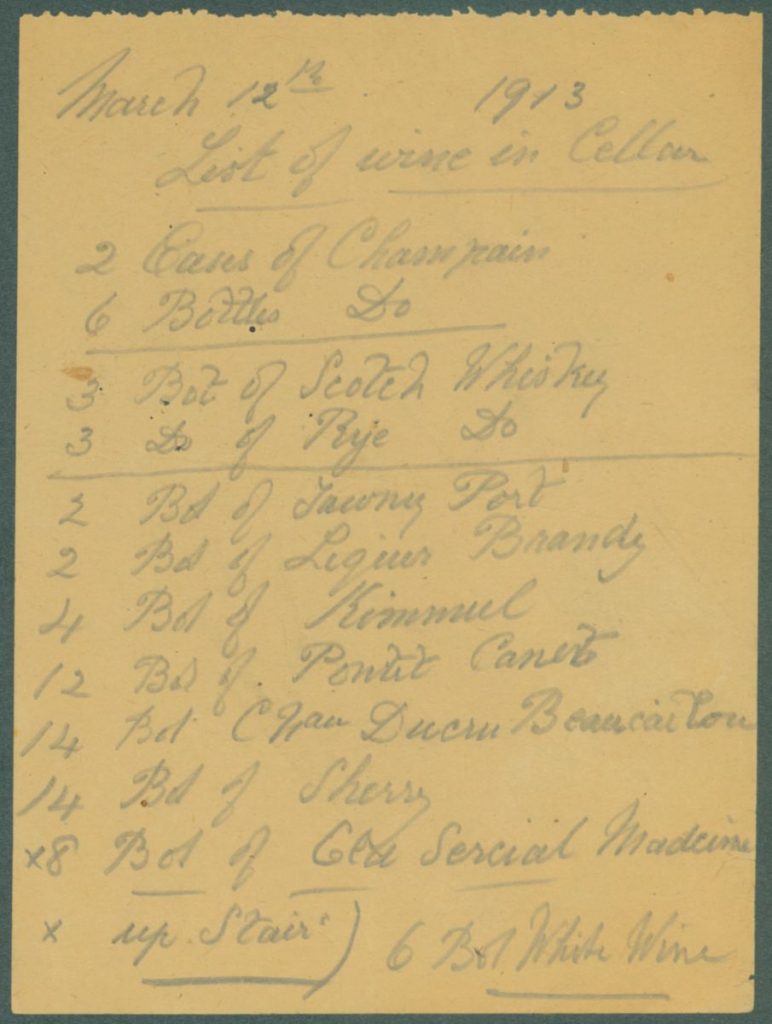 March 12th 1913
List of wine in Cellar
2 Cases of Champain
6 Bottles Do
3 Bot of Scotch Whiskey
3 Do of Rye Do
2 Bot of Tawny Port
2 Bot of Liqiur Brandy
4 Bot of Kimmuel
12 Bot of Pontet Canet
14 Bot Chau Ducru Beaucaillou
14 Bot of Sherry
x8 Bot of Old Sercial Madeime
x up Stairs) 6 Bot White Wine